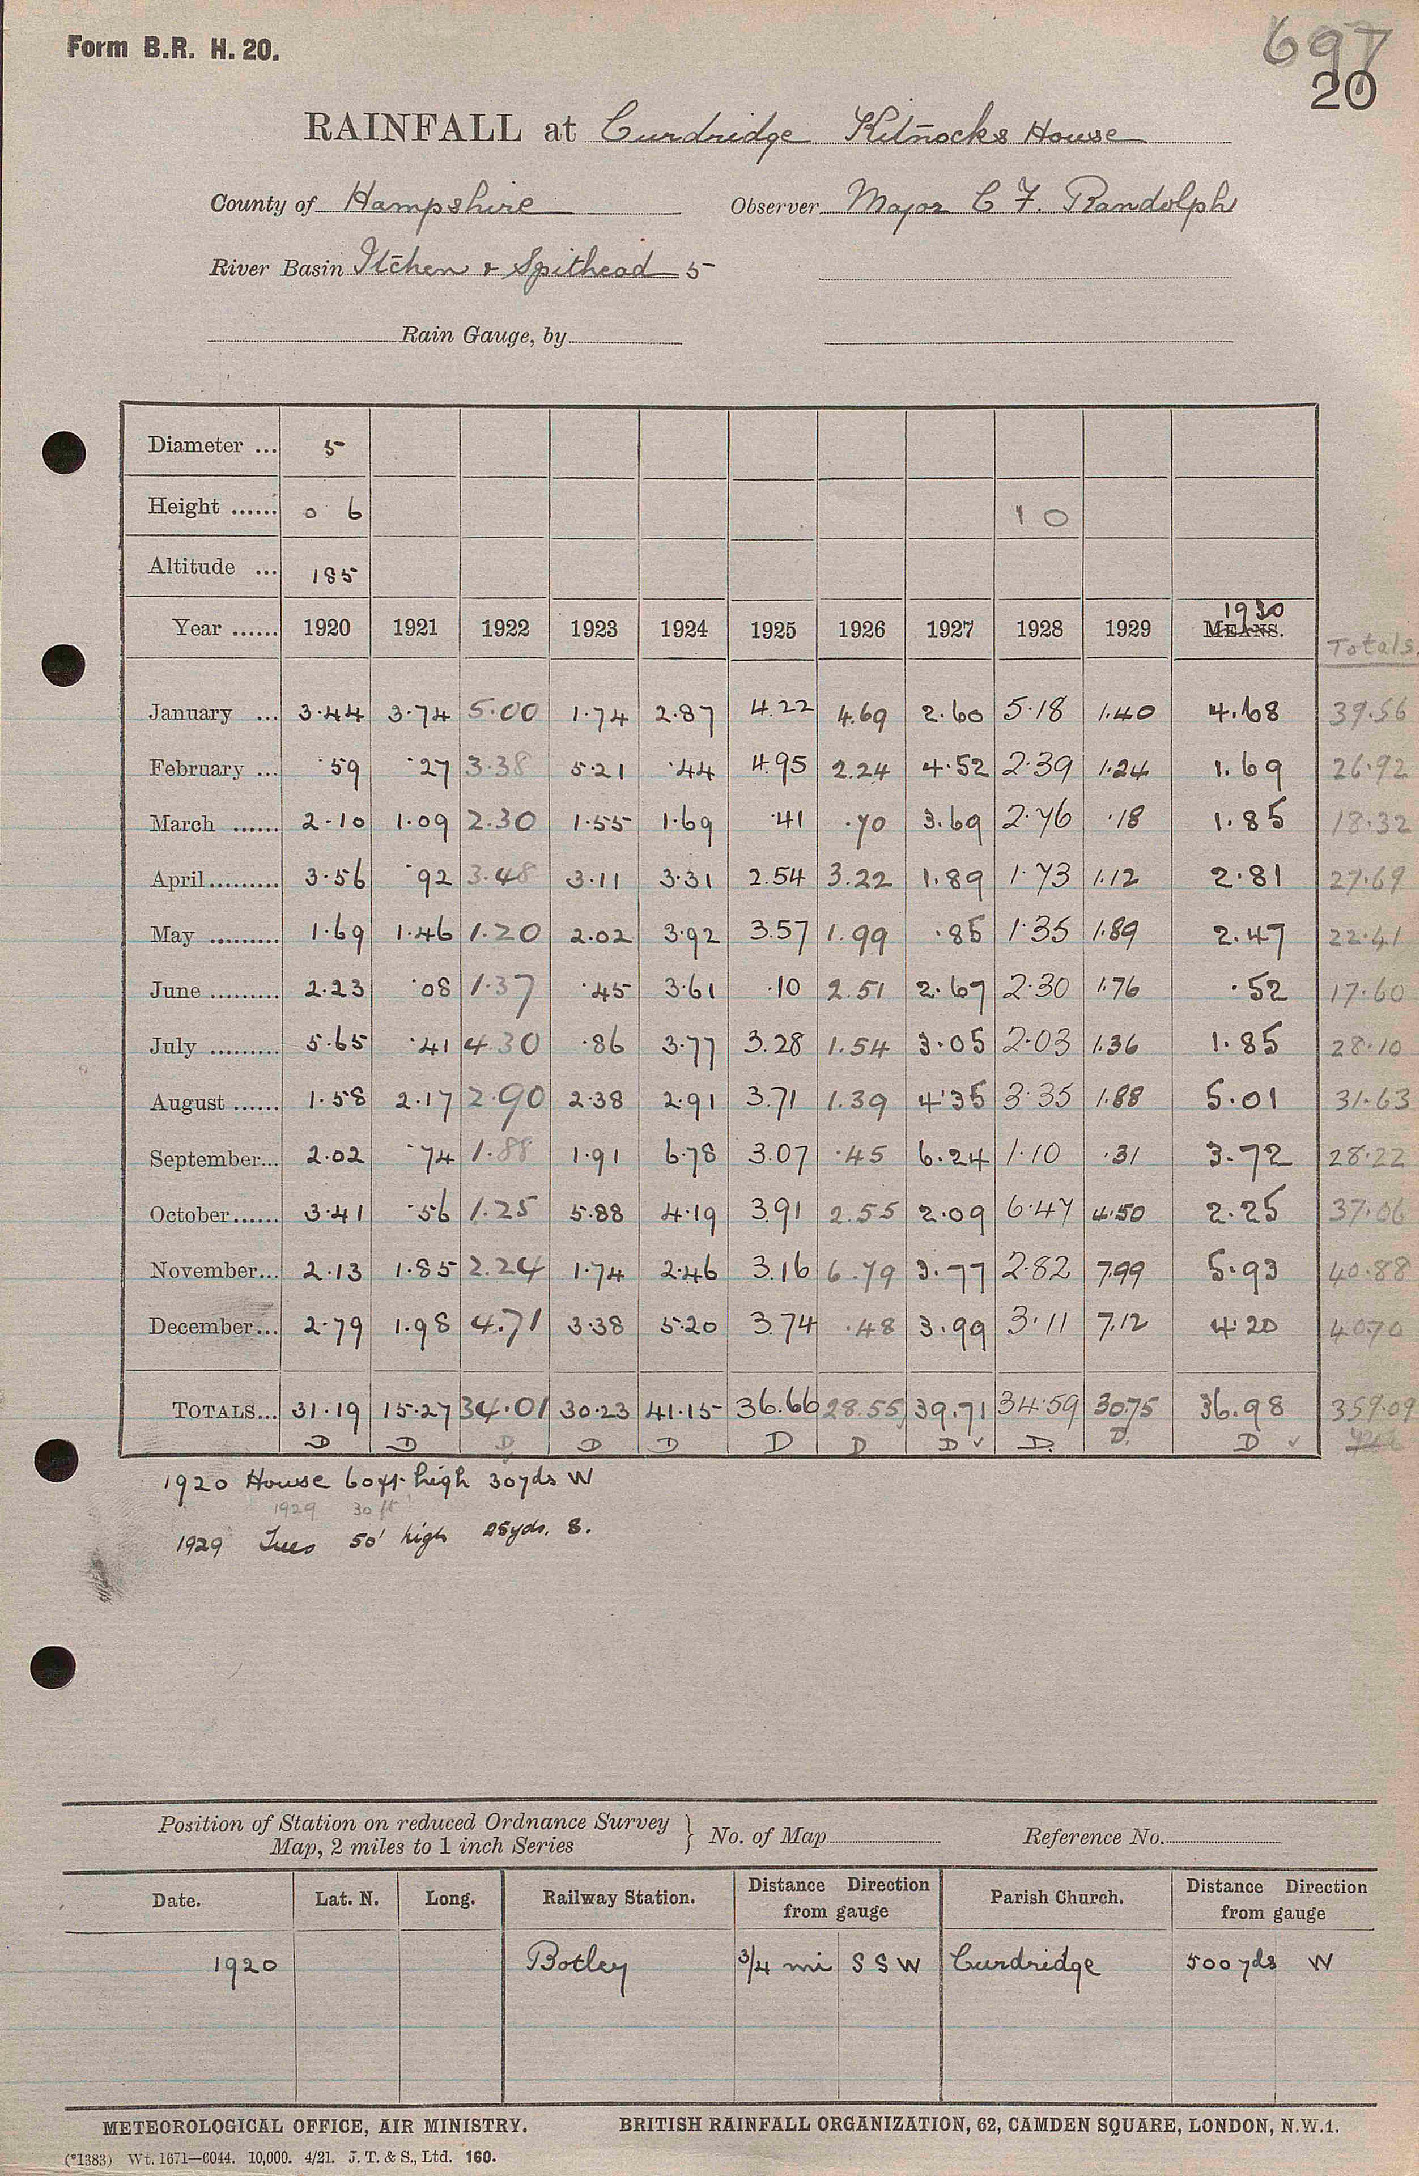 Form B.R. H. 20.
697
20
RAINFALL at Curdridge Kitnocks House
County of Hampshire Observer Major C F. Randolph
River Basin Itchen & Spithead 5
Rain Gauge, by
Diameter ... 5
Height ...... 0 6 1 0
Altitude ... 185
1930
Year ...... 1920 1921 1922 1923 1924 1925 1926 1927 1928 1929 MEANS. Totals.
January ... 3.44 3.74 5.00 1.74 2.87 4.22 4.69 2.60 5.18 1.40 4.68 39.56
February ... .59 .27 3.38 5.21 .44 4.95 2.24 4.52 2.39 1.24 1.69 26.92
March ...... 2.10 1.09 2.30 1.55 1.69 .41 .70 3.69 2.76 .18 1.85 18.32
April ......... 3.56 .92 3.48 3.11 3.31 2.54 3.22 1.89 1.73 1.12 2.81 27.69
May ......... 1.69 1.46 1.20 2.02 3.92 3.57 1.99 .85 1.35 1.89 2.47 22.41
June ......... 2.23 .08 1.37 .45 3.61 .10 2.51 2.67 2.30 1.76 .52 17.60
July ......... 5.65 .41 4.30 .86 3.77 3.28 1.54 3.05 2.03 1.36 1.85 28.10
August ...... 1.58 2.17 2.90 2.38 2.91 3.71 1.39 4.35 3.35 1.88 5.01 31.63
September... 2.02 .74 1.88 1.91 6.78 3.07 .45 6.24 1.10 .31 3.72 28.22
October...... 3.41 .56 1.25 5.88 4.19 3.91 2.55 2.09 6.47 4.50 2.25 37.06
November... 2.13 1.85 2.24 1.74 2.46 3.16 6.79 3.77 2.82 7.99 5.93 40.88
December... 2.79 1.98 4.71 3.38 5.20 3.74 .48 3.99 3.11 7.12 4.20 40.70
TOTALS... 31.19 15.27 34.01 30.23 41.15 36.66 28.55 39.71 34.59 30.75 36.98 359.09
D D D D D D D D ✓ D. D. D ✓
1920 House 60ft high 30yds W
1929 30 ft
1929 Trees 50' high 25yds. S.
Position of Station on reduced Ordnance Survey
Map, 2 miles to 1 inch Series } No. of Map Reference No.
Date. Lat. N. Long. Railway Station. Distance Direction from gauge Parish Church. Distance Direction from gauge
1920 Botley 3/4 mi S S W Curdridge 500 yds W
METEOROLOGICAL OFFICE, AIR MINISTRY. BRITISH RAINFALL ORGANIZATION, 62, CAMDEN SQUARE, LONDON, N.W.1.
(*1383) Wt. 1671—6044. 10,000. 4/21. J. T. & S., Ltd. 160.